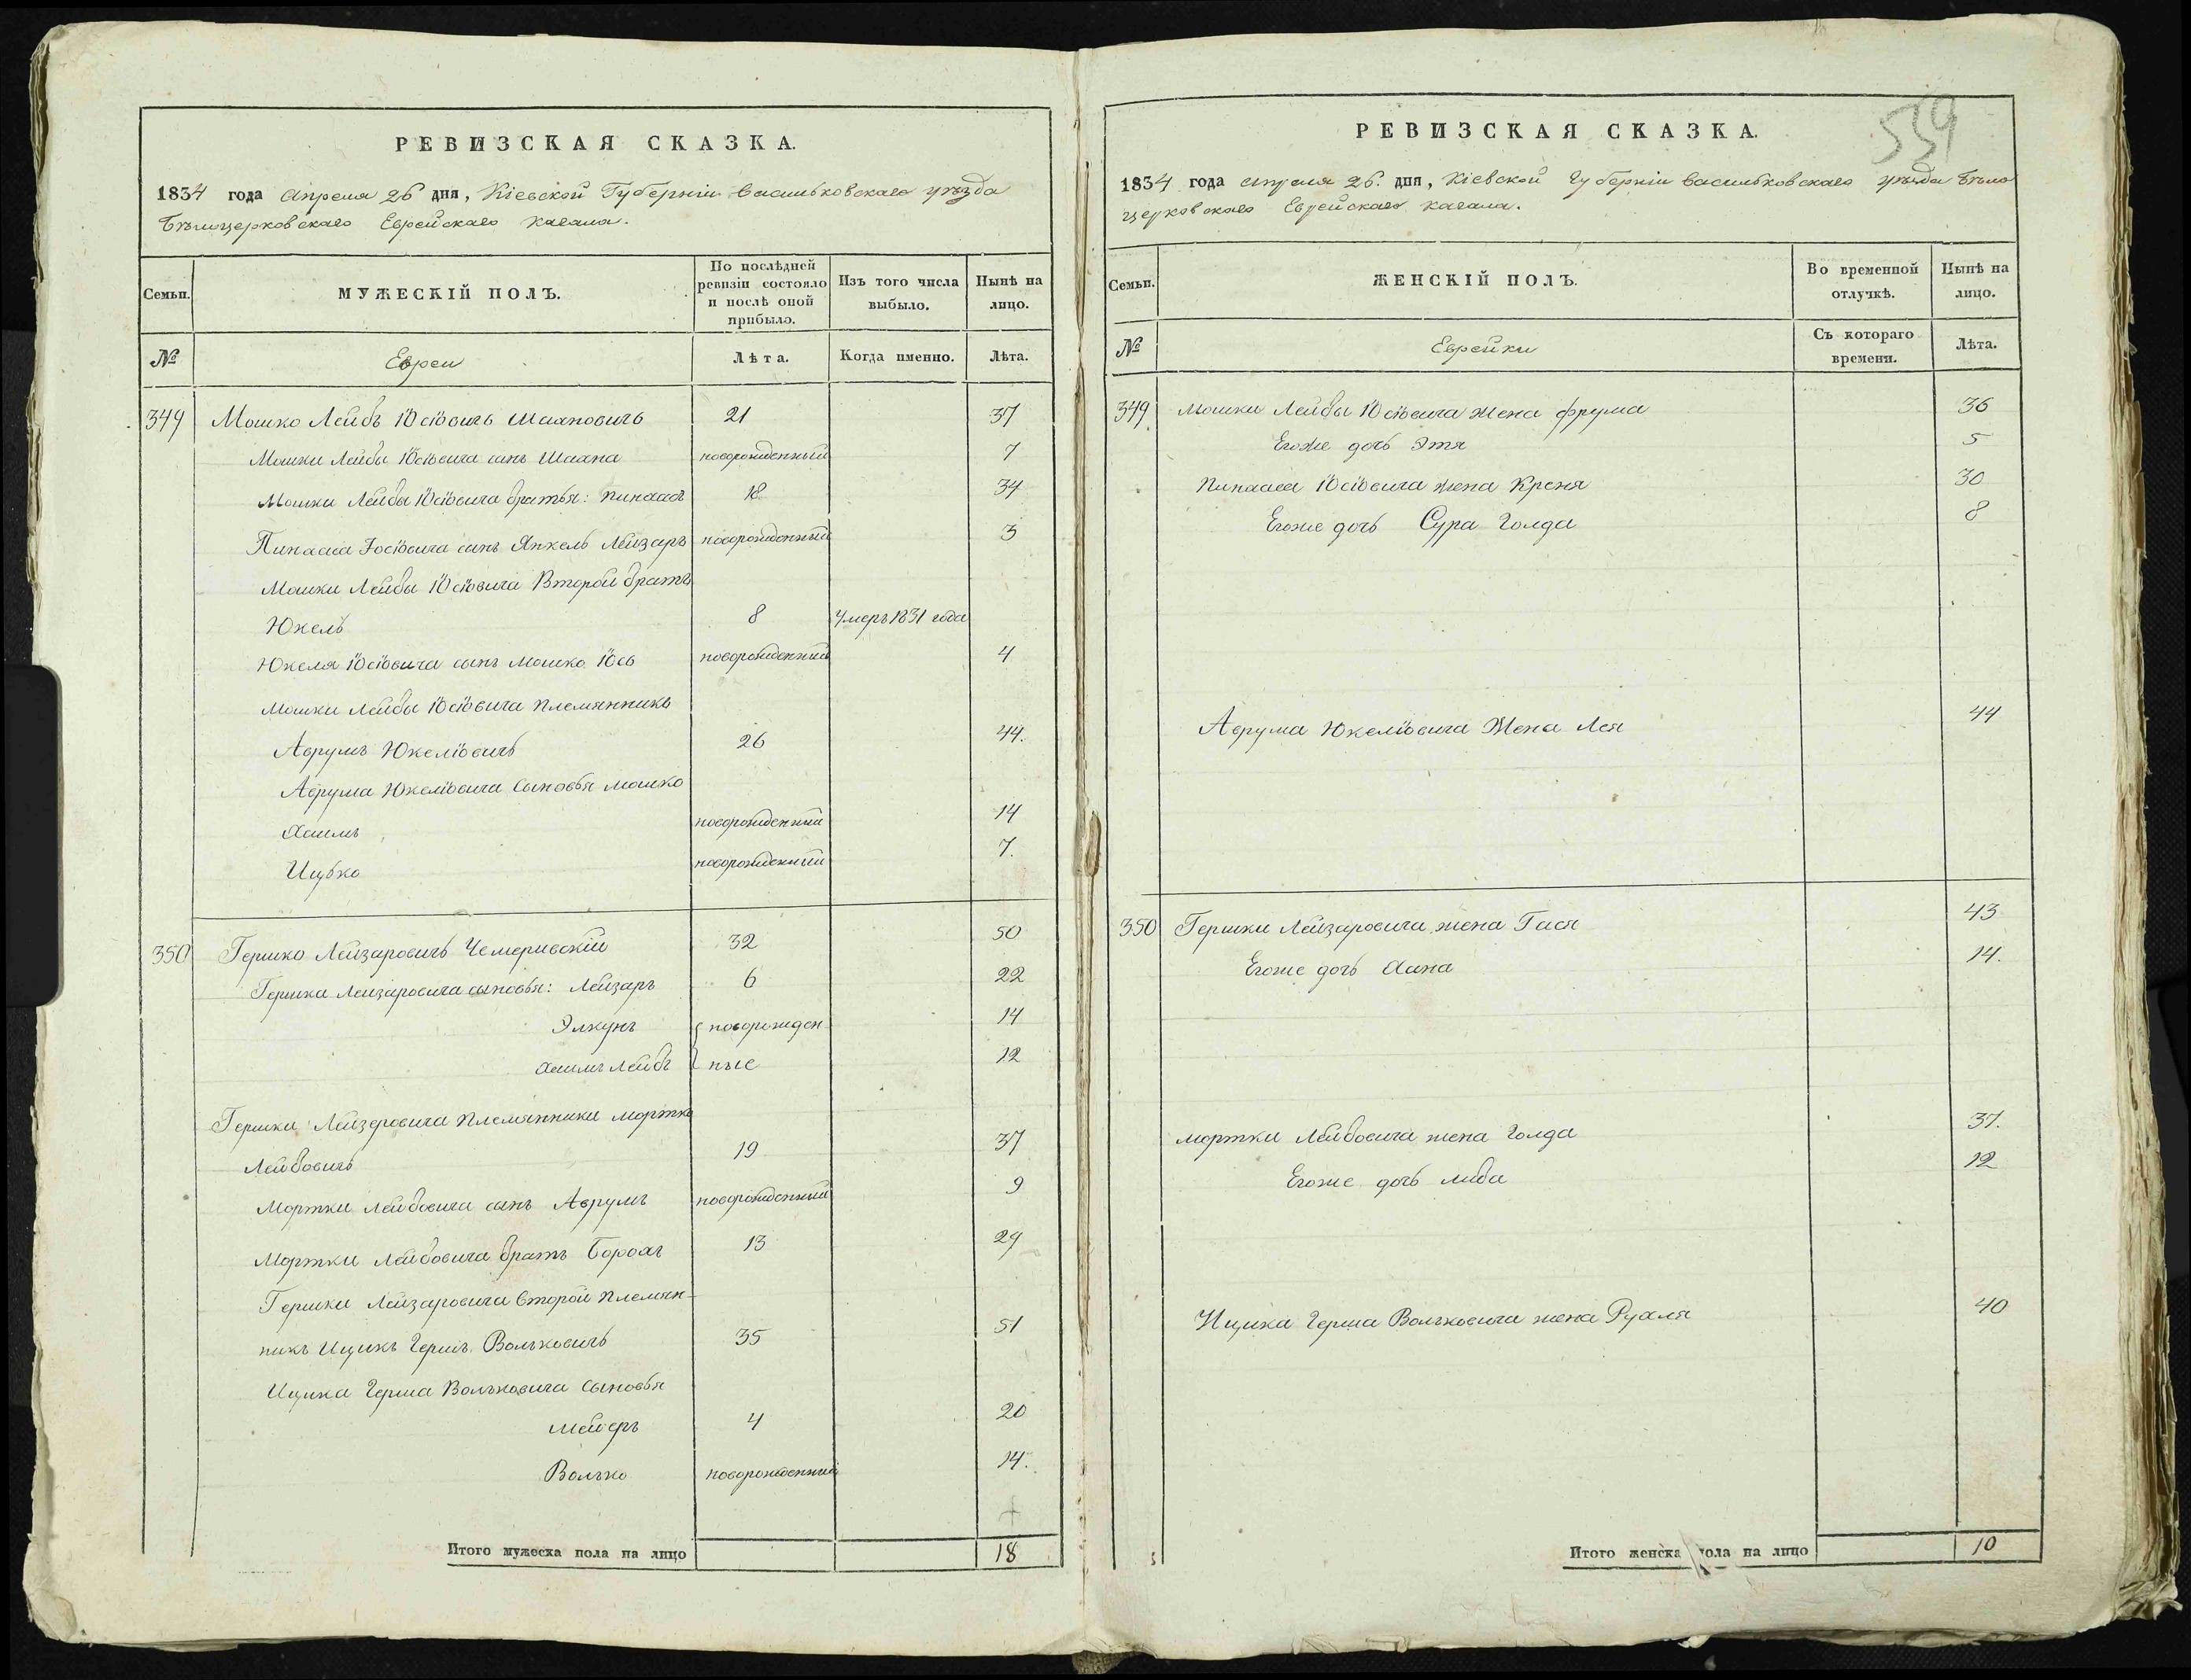 РЕВИЗСКАЯ СКАЗКА.
1834 года Апреля 26 дня, Кіевской Губерніи Васильковскаго уѣзда
Бѣлоцерковскаго Еврейскаго кагала.
Семьи.
МУЖЕСКІЙ ПОЛЪ.
По послѣдней ревизіи состояло и послѣ оной прибыло.
Изъ того числа выбыло.
Нынѣ на лицо.
№
Евреи
Лѣта.
Когда именно.
Лѣта.
349 Мошко Лейбъ Іосіовичъ Шахновичъ 21 37
Мошки Лейбы Іосіовича сынъ Шахна новорожденный 7
Мошки Лейбы Іосіовича братья: Пинхасъ 18 34
Пинхаса Іосіовича сынъ Янкель Лейзаръ новорожденный 3
Мошки Лейбы Іосіовича Второй братъ
Юкель 8 Умеръ 1831 года
Юкеля Іосіовича сынъ Мошко Іось новорожденный 4
Мошки Лейбы Іосіовича Племянникъ
Аврумъ Юкеліовичъ 26 44.
Аврума Юкеліовича Сыновья Мошко
Хаимъ новорожденный 14
Ицько новорожденный 7.
350 Гершко Лейзаровичъ Чемеривскій 32 50
Гершка Лейзаровича сыновья: Лейзаръ 6 22
Элкунъ новорожден 14
Хаимъ Лейбъ ные 12
Гершки Лейзеровича Племянники Мортко
Лейбовичъ 19 37
Мортки Лейбовича сынъ Аврумъ новорожденный 9
Мортки Лейбовича братъ Борохъ 13 29
Гершки Лейзаровича Второй Племян-
никъ Ицикъ Гершъ Вольковичъ 35 51
Ицика Герша Вольковича Сыновья
Мейеръ 4 20
Волько новорожденный 14.
Итого мужеска пола на лицо 18
539
РЕВИЗСКАЯ СКАЗКА.
1834 года Апреля 26. дня, Кіевской Губерніи Васильковскаго уѣзда Бѣло
церковскаго Еврейскаго кагала.
Семьи.
ЖЕНСКІЙ ПОЛЪ.
Во временной отлучкѣ.
Нынѣ на лицо.
№
Еврейки
Съ котораго времени.
Лѣта.
349 Мошки Лейбы Іосіовича Жена Фрума 36
Егоже дочь Этя 5
Пинхаса Іосіовича жена Креня 30
Егоже дочь Сура Голда 8
Аврума Юкеліовича Жена Лея 44
350 Гершки Лейзаровича жена Гася 43
Егоже дочь Хана 14.
Мортки Лейбовича жена Голда 37.
Егоже дочь Либа 12
Ицика Герша Вольковича жена Рухля 40
Итого женска пола на лицо 10